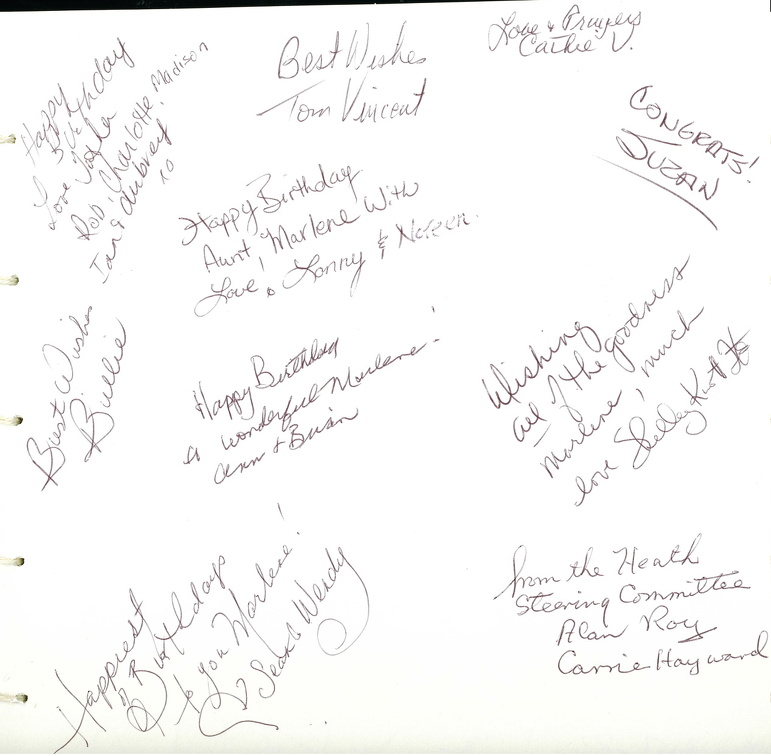 Happy
Birthday
Love
Rob, Charlotte, Madison
Ian & Aubrey
xo
Best Wishes
Tom Vincent
Love & Prayers
Cathie V.
CONGRATS!
SUZAN
Happy Birthday
Aunt Marlene With
Love, Lonny & Noreen.
Best Wishes
Billie
Happy Birthday
a wonderful Marlene!
Ann & Brian
Wishing
all of the goodness
Marlene, much
love Shelley
Happiest
of Birthdays
to you Marlene!
Sean & Wendy
from the Heath
Steering Committee
Alan Roy
Carrie Hayward